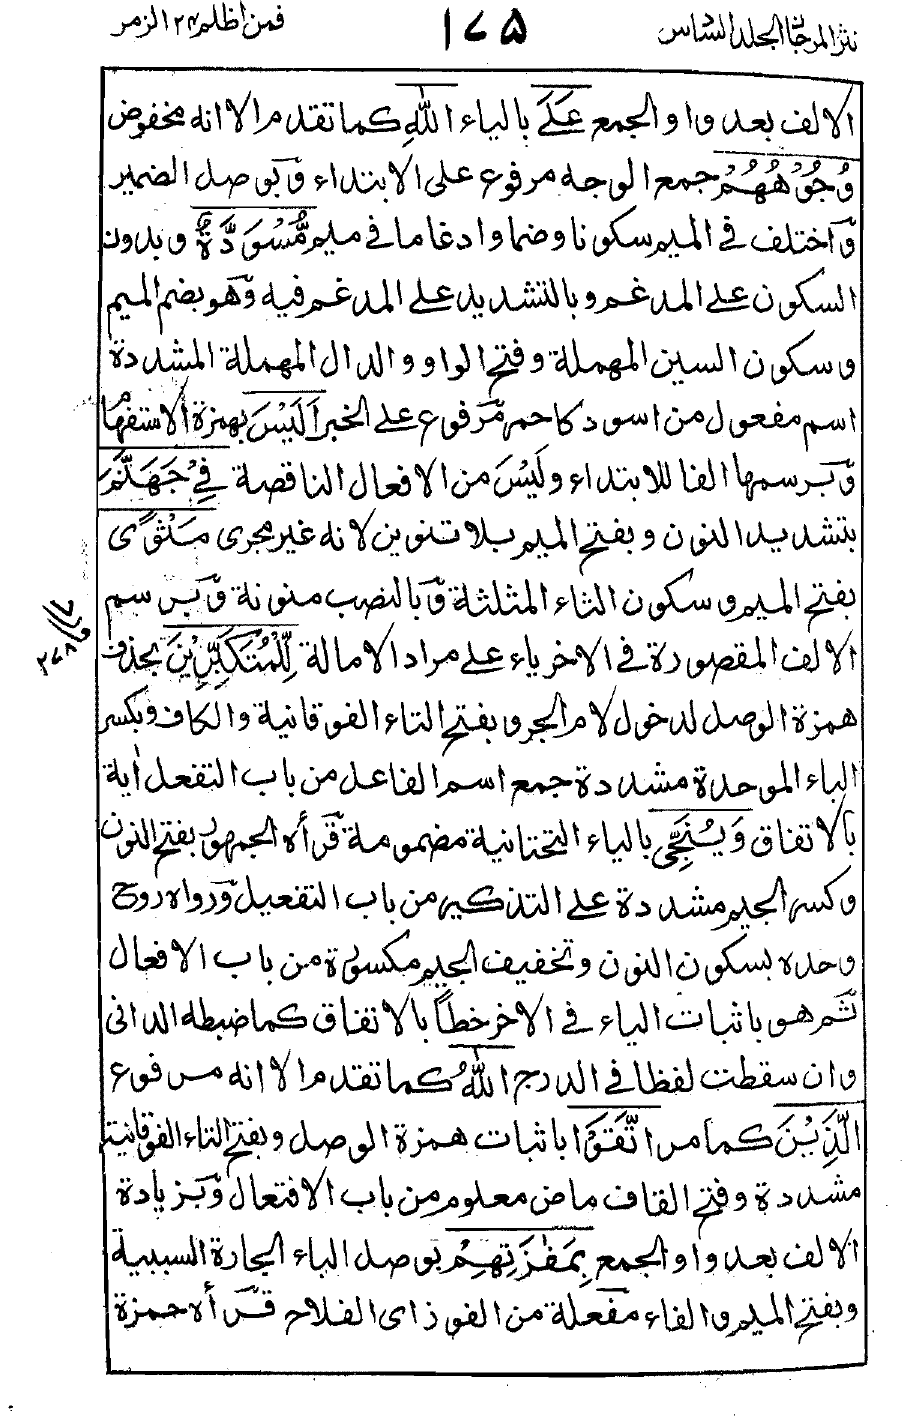 نثر المرجان الجلد السادس ١٧٥ فمن اظلم ٢٤ الزمر
الالف بعد واو الجمع عَلَى بالياء اللهِ كما تقدم الا انه مخفوض
وُجُوْهُهُمْ جمع الوجه مرفوع على الابتداء وبوصل الضمير
واختلف فى الميم سكونا وضما وادغاما فى ميم مُّسْوَدَّةٌ وبدون
السكون على المدغم وبالتشديد على المدغم فيه وهو بضم الميم
وسكون السين المهملة وفتح الواو والدال المهملة المشددة
اسم مفعول من اسود كاحمر مرفوع على الخبر اَلَيْسَ بهمزة الاستفهام
وبرسمها الفا للابتداء ولَيْسَ من الافعال الناقصة فِيْ جَهَنَّمَ
بتشديد النون وبفتح الميم بلا تنوين لانه غير مجرى مَثْوًى
بفتح الميم وسكون الثاء المثلثة وبالنصب منونة وبرسم
الالف المقصورة فى الاخر ياء على مراد الامالة لِّلْمُتَكَبِّرِيْنَ بحذف
همزة الوصل لدخول لام الجر وبفتح التاء الفوقانية والكاف وبكسر
الباء الموحدة مشددة جمع اسم الفاعل من باب التفعل أية
بالاتفاق وَيُنَجِّى بالياء التحتانية مضمومة قرأه الجمهور بفتح النون
وكسر الجيم مشددة على التذكير من باب التفعيل ورواه روح
وحده بسكون النون وتخفيف الجيم مكسورة من باب الافعال
ثم هو باثبات الياء فى الاخر خطاً بالاتفاق كما ضبطه الدانى
وان سقطت لفظا فى الدرج اللهُ كما تقدم الا انه مرفوع
الَّذِيْنَ كما مر اتَّقَوْا باثبات همزة الوصل وبفتح التاء الفوقانية
مشددة وفتح القاف ماض معلوم من باب الافتعال وبزيادة
الالف بعد واو الجمع بِمَفٰزَتِهِمْ بوصل الباء الجارة السببية
وبفتح الميم والفاء مفعلة من الفوز اى الفلاح قرأه حمزة